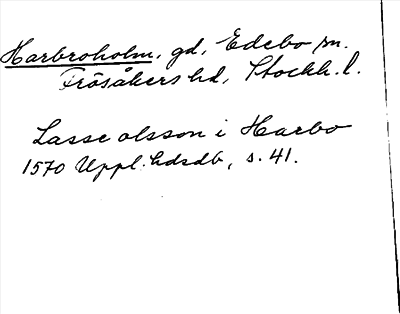 Harbroholm, gd, Edebo sn.
Frösåkers hd, Stockh. l.
Lasse olsson i Harbo
1570 Uppl. hdsdb, s. 41.